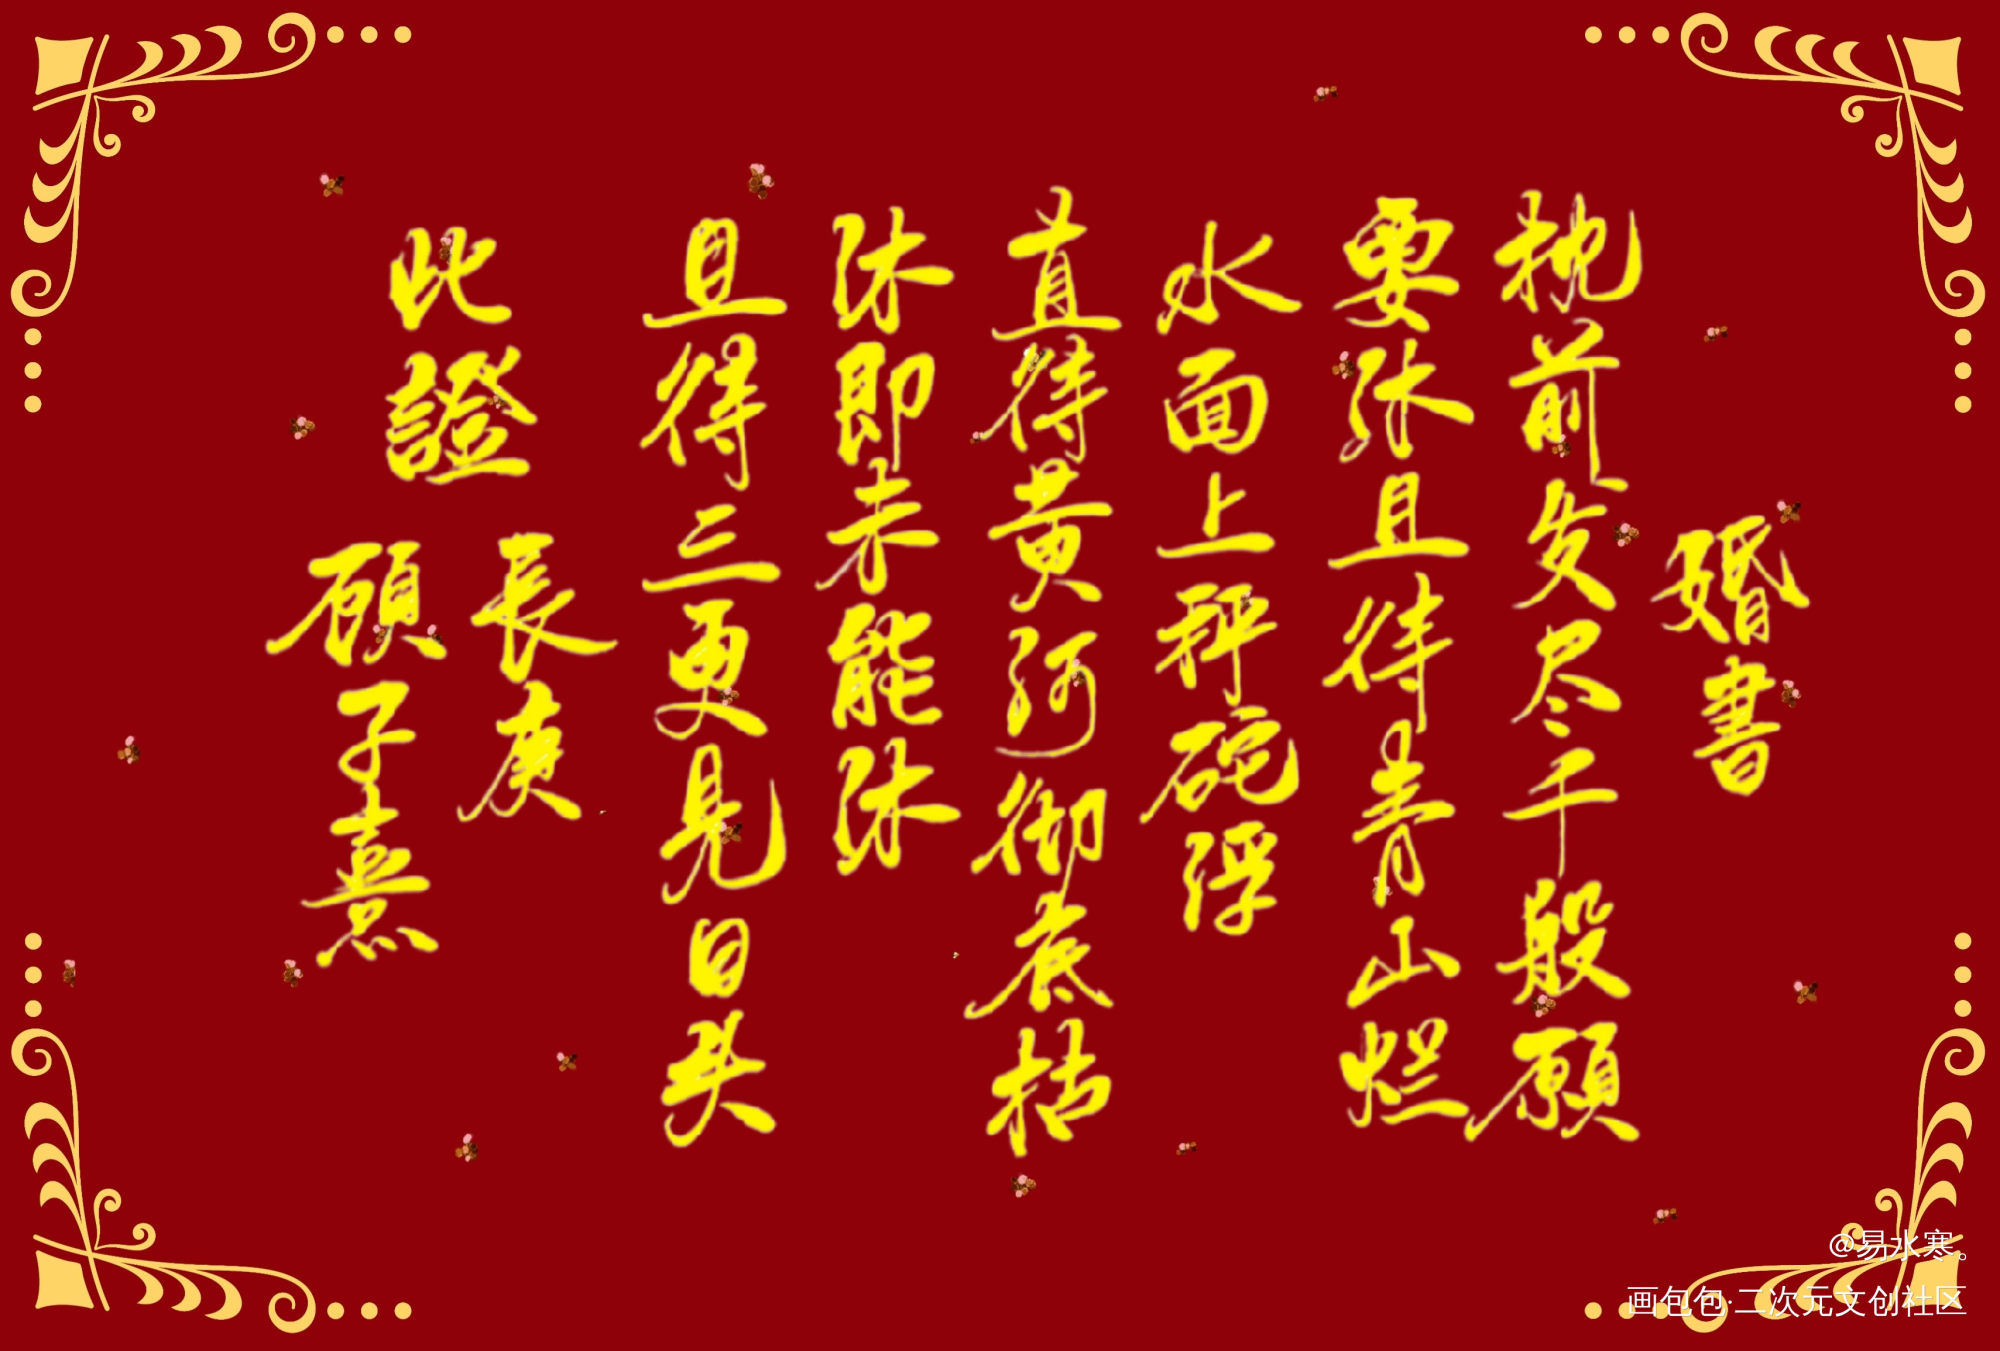 婚書
枕前发尽千般願
要休且待青山烂
水面上秤砣浮
直待黄河彻底枯
休即未能休
且得三更見日头
此證
長庚
顾子熹
@易水寒。
画包包·二次元文创社区